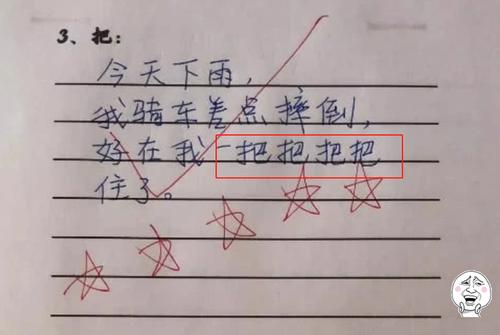 3、把：
今天下雨，
我骑车差点摔倒，
好在我一把把把把
住了。